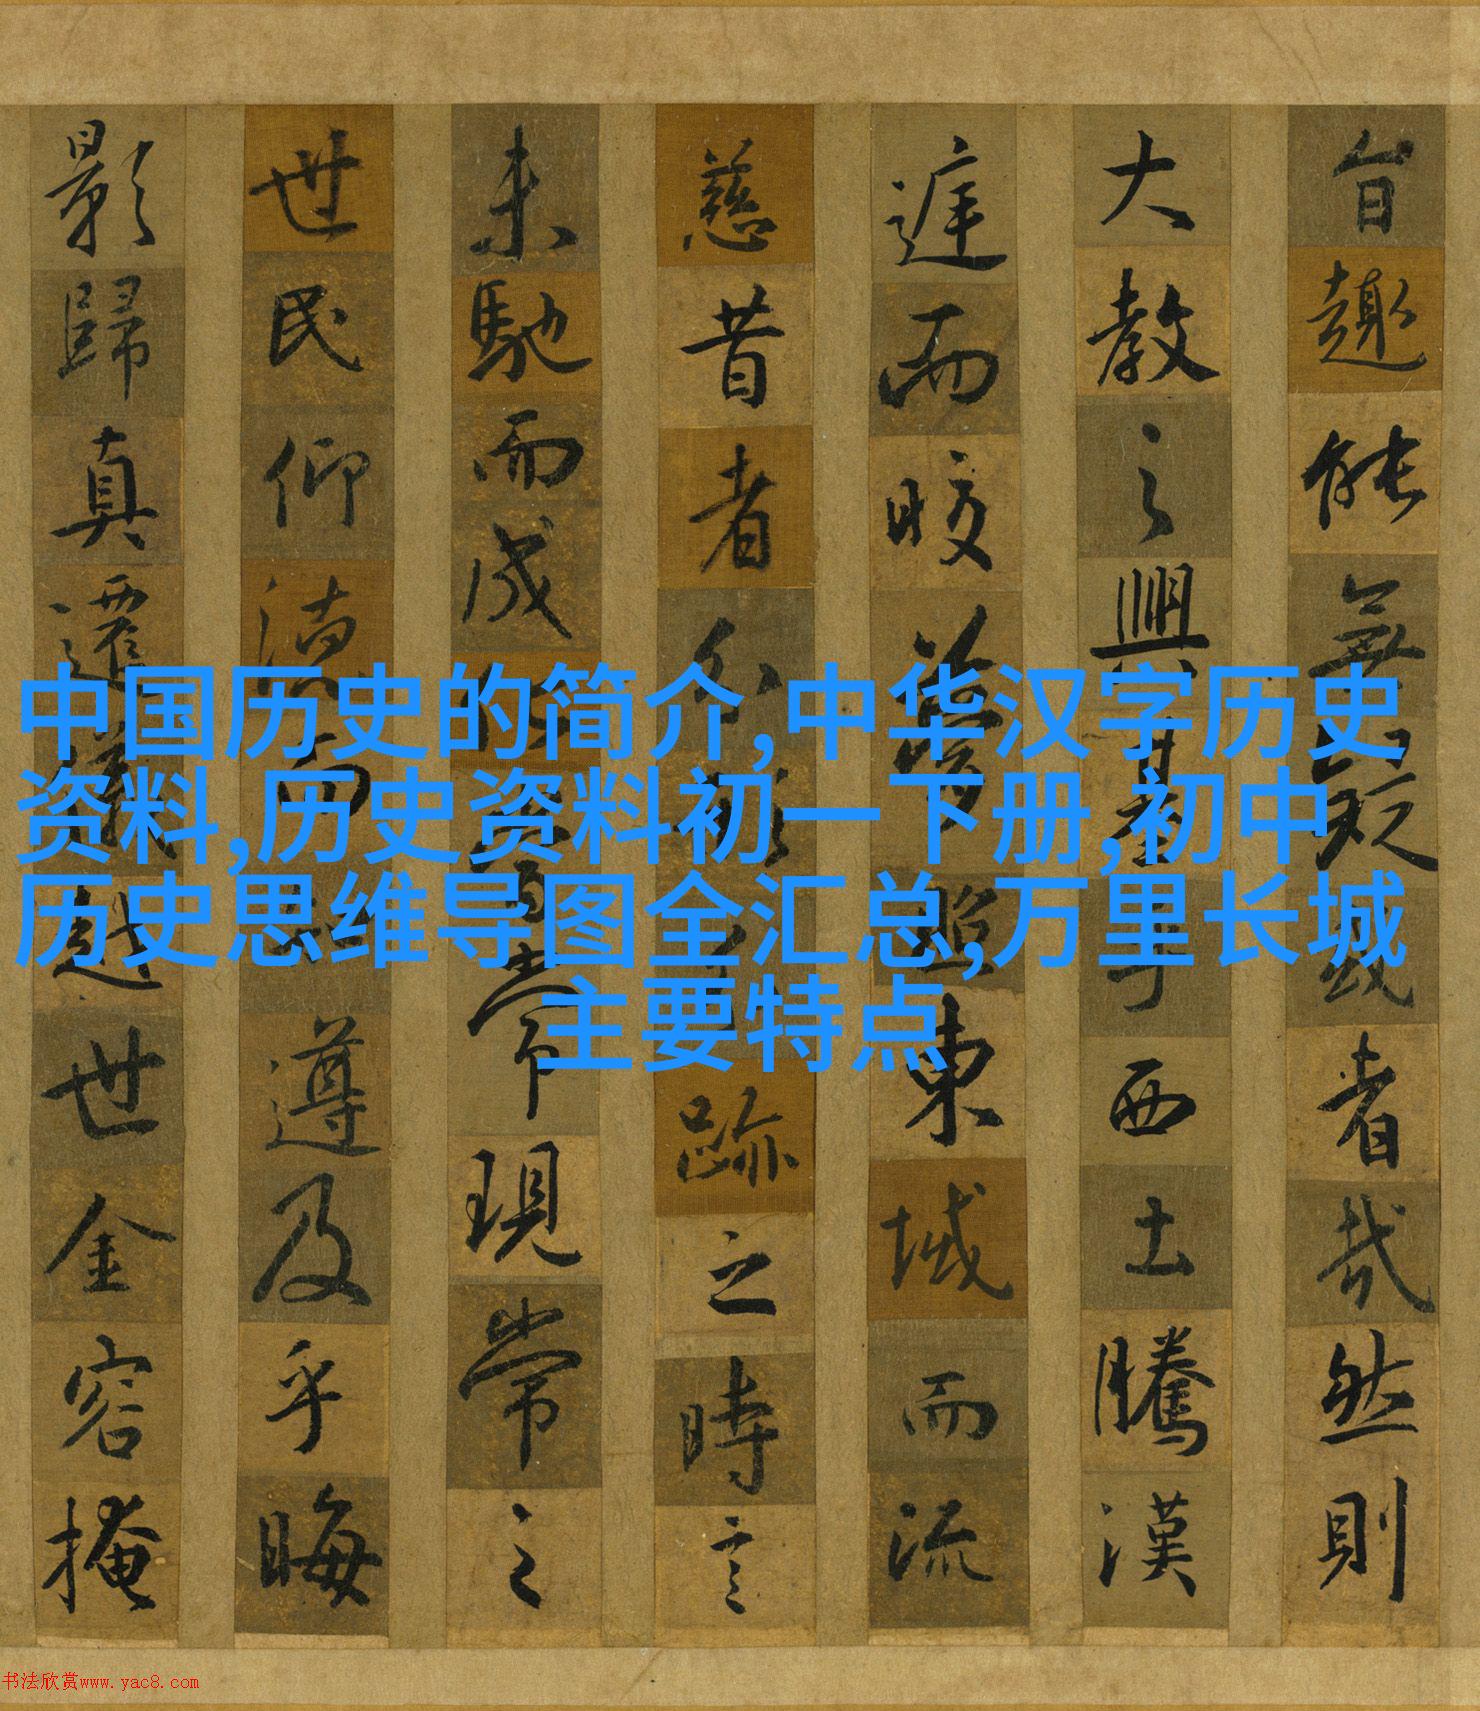 旨趣能無疑或者哉然則
大教之興基乎西土騰漢
庭而皎夢照東域而流
慈昔者分形分跡之時言
未馳而成化當常現常之
世民仰德而知遵及乎晦
影歸真遷儀越世金容掩
中国历史的简介,中华汉字历史
资料,历史资料初一下册,初中
历史思维导图全汇总,万里长城
主要特点
书法欣赏www.yac8.com